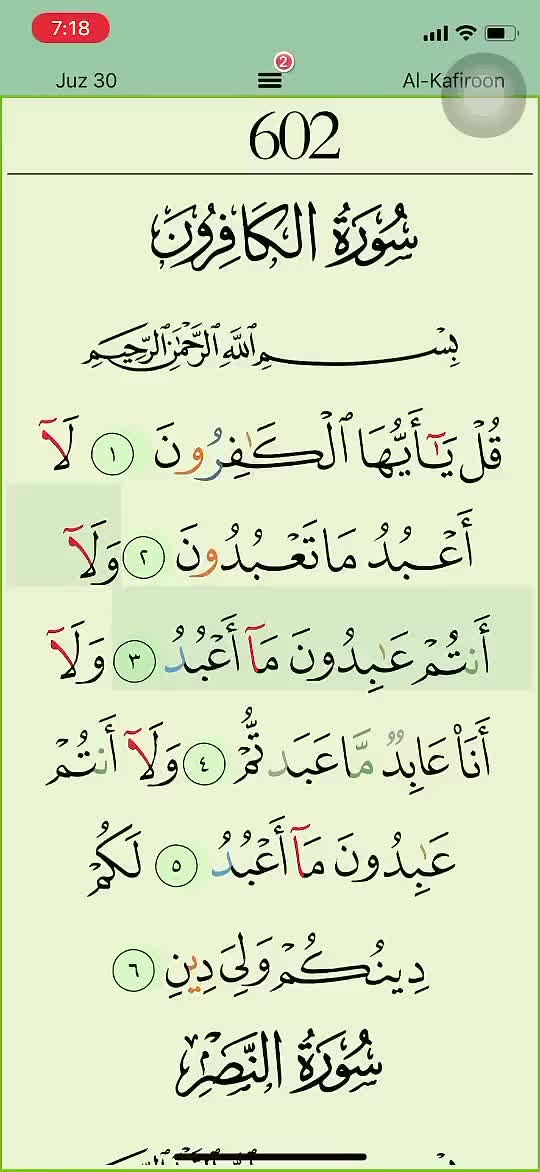 7:18
Juz 30
2
Al-Kafiroon
602
سُورَةُ الكَافِرُونَ
بِسْمِ اللَّهِ الرَّحْمَٰنِ الرَّحِيمِ
قُلْ يَـٰٓأَيُّهَا ٱلْكَـٰفِرُونَ ١ لَآ
أَعْبُدُ مَا تَعْبُدُونَ ٢ وَلَآ
أَنتُمْ عَـٰبِدُونَ مَآ أَعْبُدُ ٣ وَلَآ
أَنَا۠ عَابِدٌ مَّا عَبَدتُّمْ ٤ وَلَآ أَنتُمْ
عَـٰبِدُونَ مَآ أَعْبُدُ ٥ لَكُمْ
دِينُكُمْ وَلِىَ دِينِ ٦
سُورَةُ النَّصْرِ